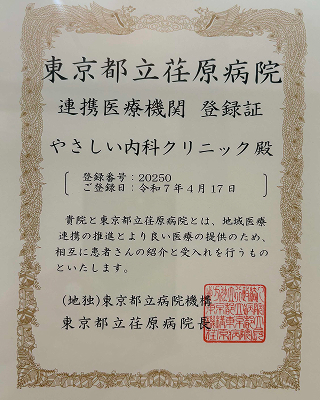 東京都立荏原病院
連携医療機関 登録証
やさしい内科クリニック殿
登録番号：20250
ご登録日：令和7年4月17日
貴院と東京都立荏原病院とは、地域医療
連携の推進とより良い医療の提供のため、
相互に患者さんの紹介と受入れを行うもの
といたします。
(地独)東京都立病院機構
東京都立荏原病院長